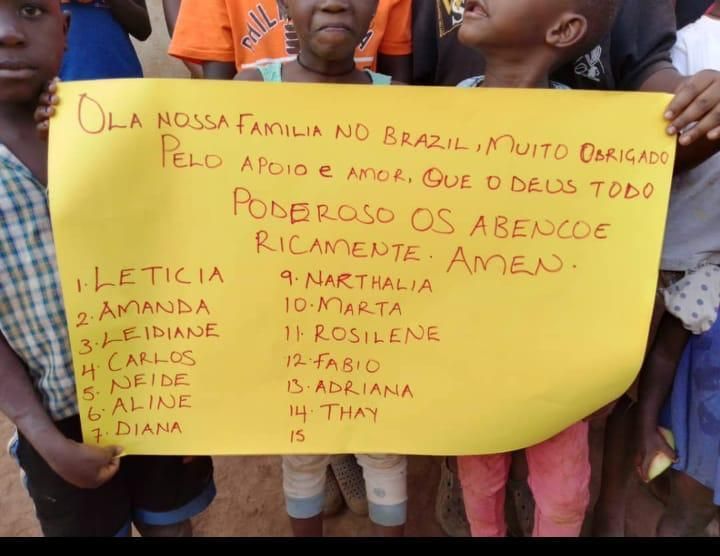 OLA NOSSA FAMILIA NO BRAZIL, MUITO OBRIGADO
PELO APOIO e AMOR, QUE O DEUS TODO
PODEROSO OS ABENCOE
RICAMENTE. AMEN.
1. LETICIA
2. AMANDA
3. LEIDIANE
4. CARLOS
5. NEIDE
6. ALINE
7. DIANA
9. NARTHALIA
10. MARTA
11. ROSILENE
12. FABIO
13. ADRIANA
14. THAY
15